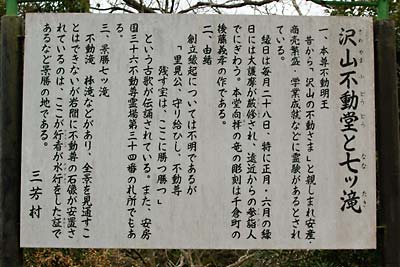 沢山不動堂と七ッ滝
さわやまふどうどう なな たき
一、本尊不動明王
昔から、「沢山の不動さま」と親しまれ安産・
商売繁盛、学業成就などに霊験があるとされ
ている。
縁日は毎月二十八日、特に正月、六月の縁
日には大護摩が厳修され、遠近からの参詣人
でにぎわう。本堂向拝の竜の彫刻は千倉町の
後藤義孝の作である。
二、由緒
創立縁起については不明であるが
「里見公、守り給ひし、不動尊
残す宝は、ここに勝つ勝つ」
という古歌が伝誦されている。また、安房
国三十六不動尊霊場第三十四番の札所でもあ
る。
三、景勝七ッ滝
不動滝、棒滝などがあり、全景を見通すこ
とはできないが岩間に不動尊の石像が安置さ
れているのは、ここが行者が水行をした証で
あるなど景勝の地である。
三芳村